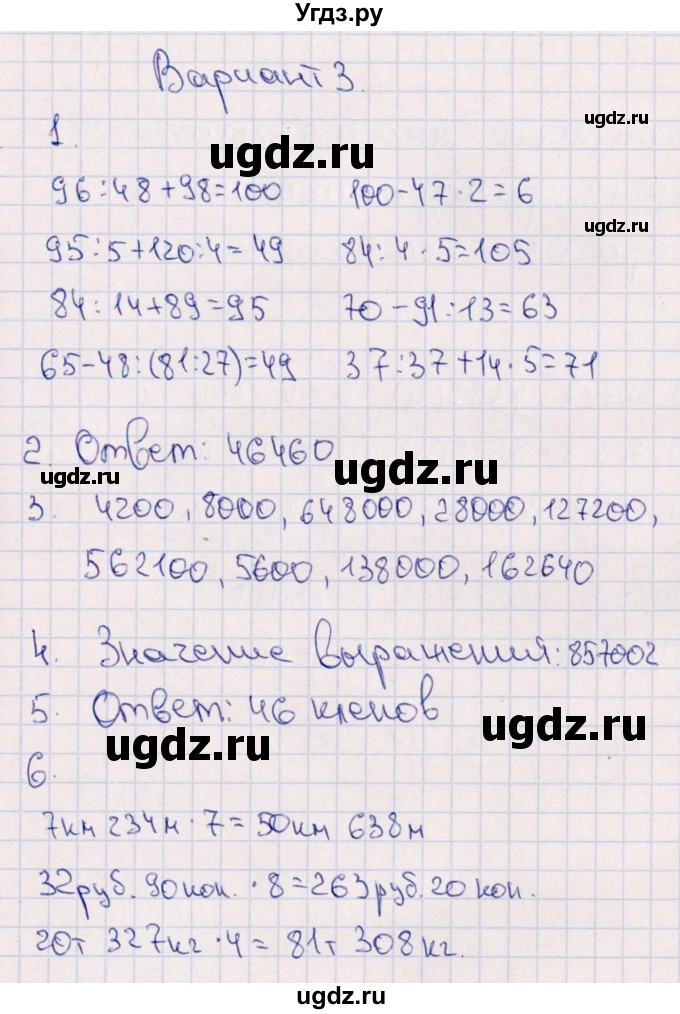 Угдз.ру
Вариант 3.
ugdz.ru
1.
ugdz.ru
96:48+98=100 100-47·2=6
ugdz.ru
95:5+120:4=49 84:4·5=105
84:14+89=95 70-91:13=63
65-48:(81:27)=49 37:37+14·5=71
2. Ответ: 46460
ugdz.ru
ugdz.ru
3. 4200, 8000, 648000, 28000, 127200,
562100, 5600, 138000, 162640
4. Значение выражения: 857002
5. Ответ: 46 кленов
ugdz.ru
ugdz.ru
6.
7км 234м·7=50км 638м
32руб. 90коп.·8=263руб.20коп.
20т 327кг·4=81т 308кг.
ugdz.ru